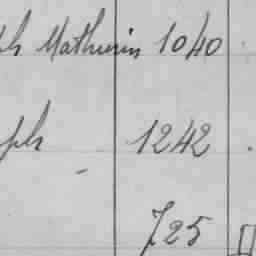 ph Mathurin 1040
ph 1242
725